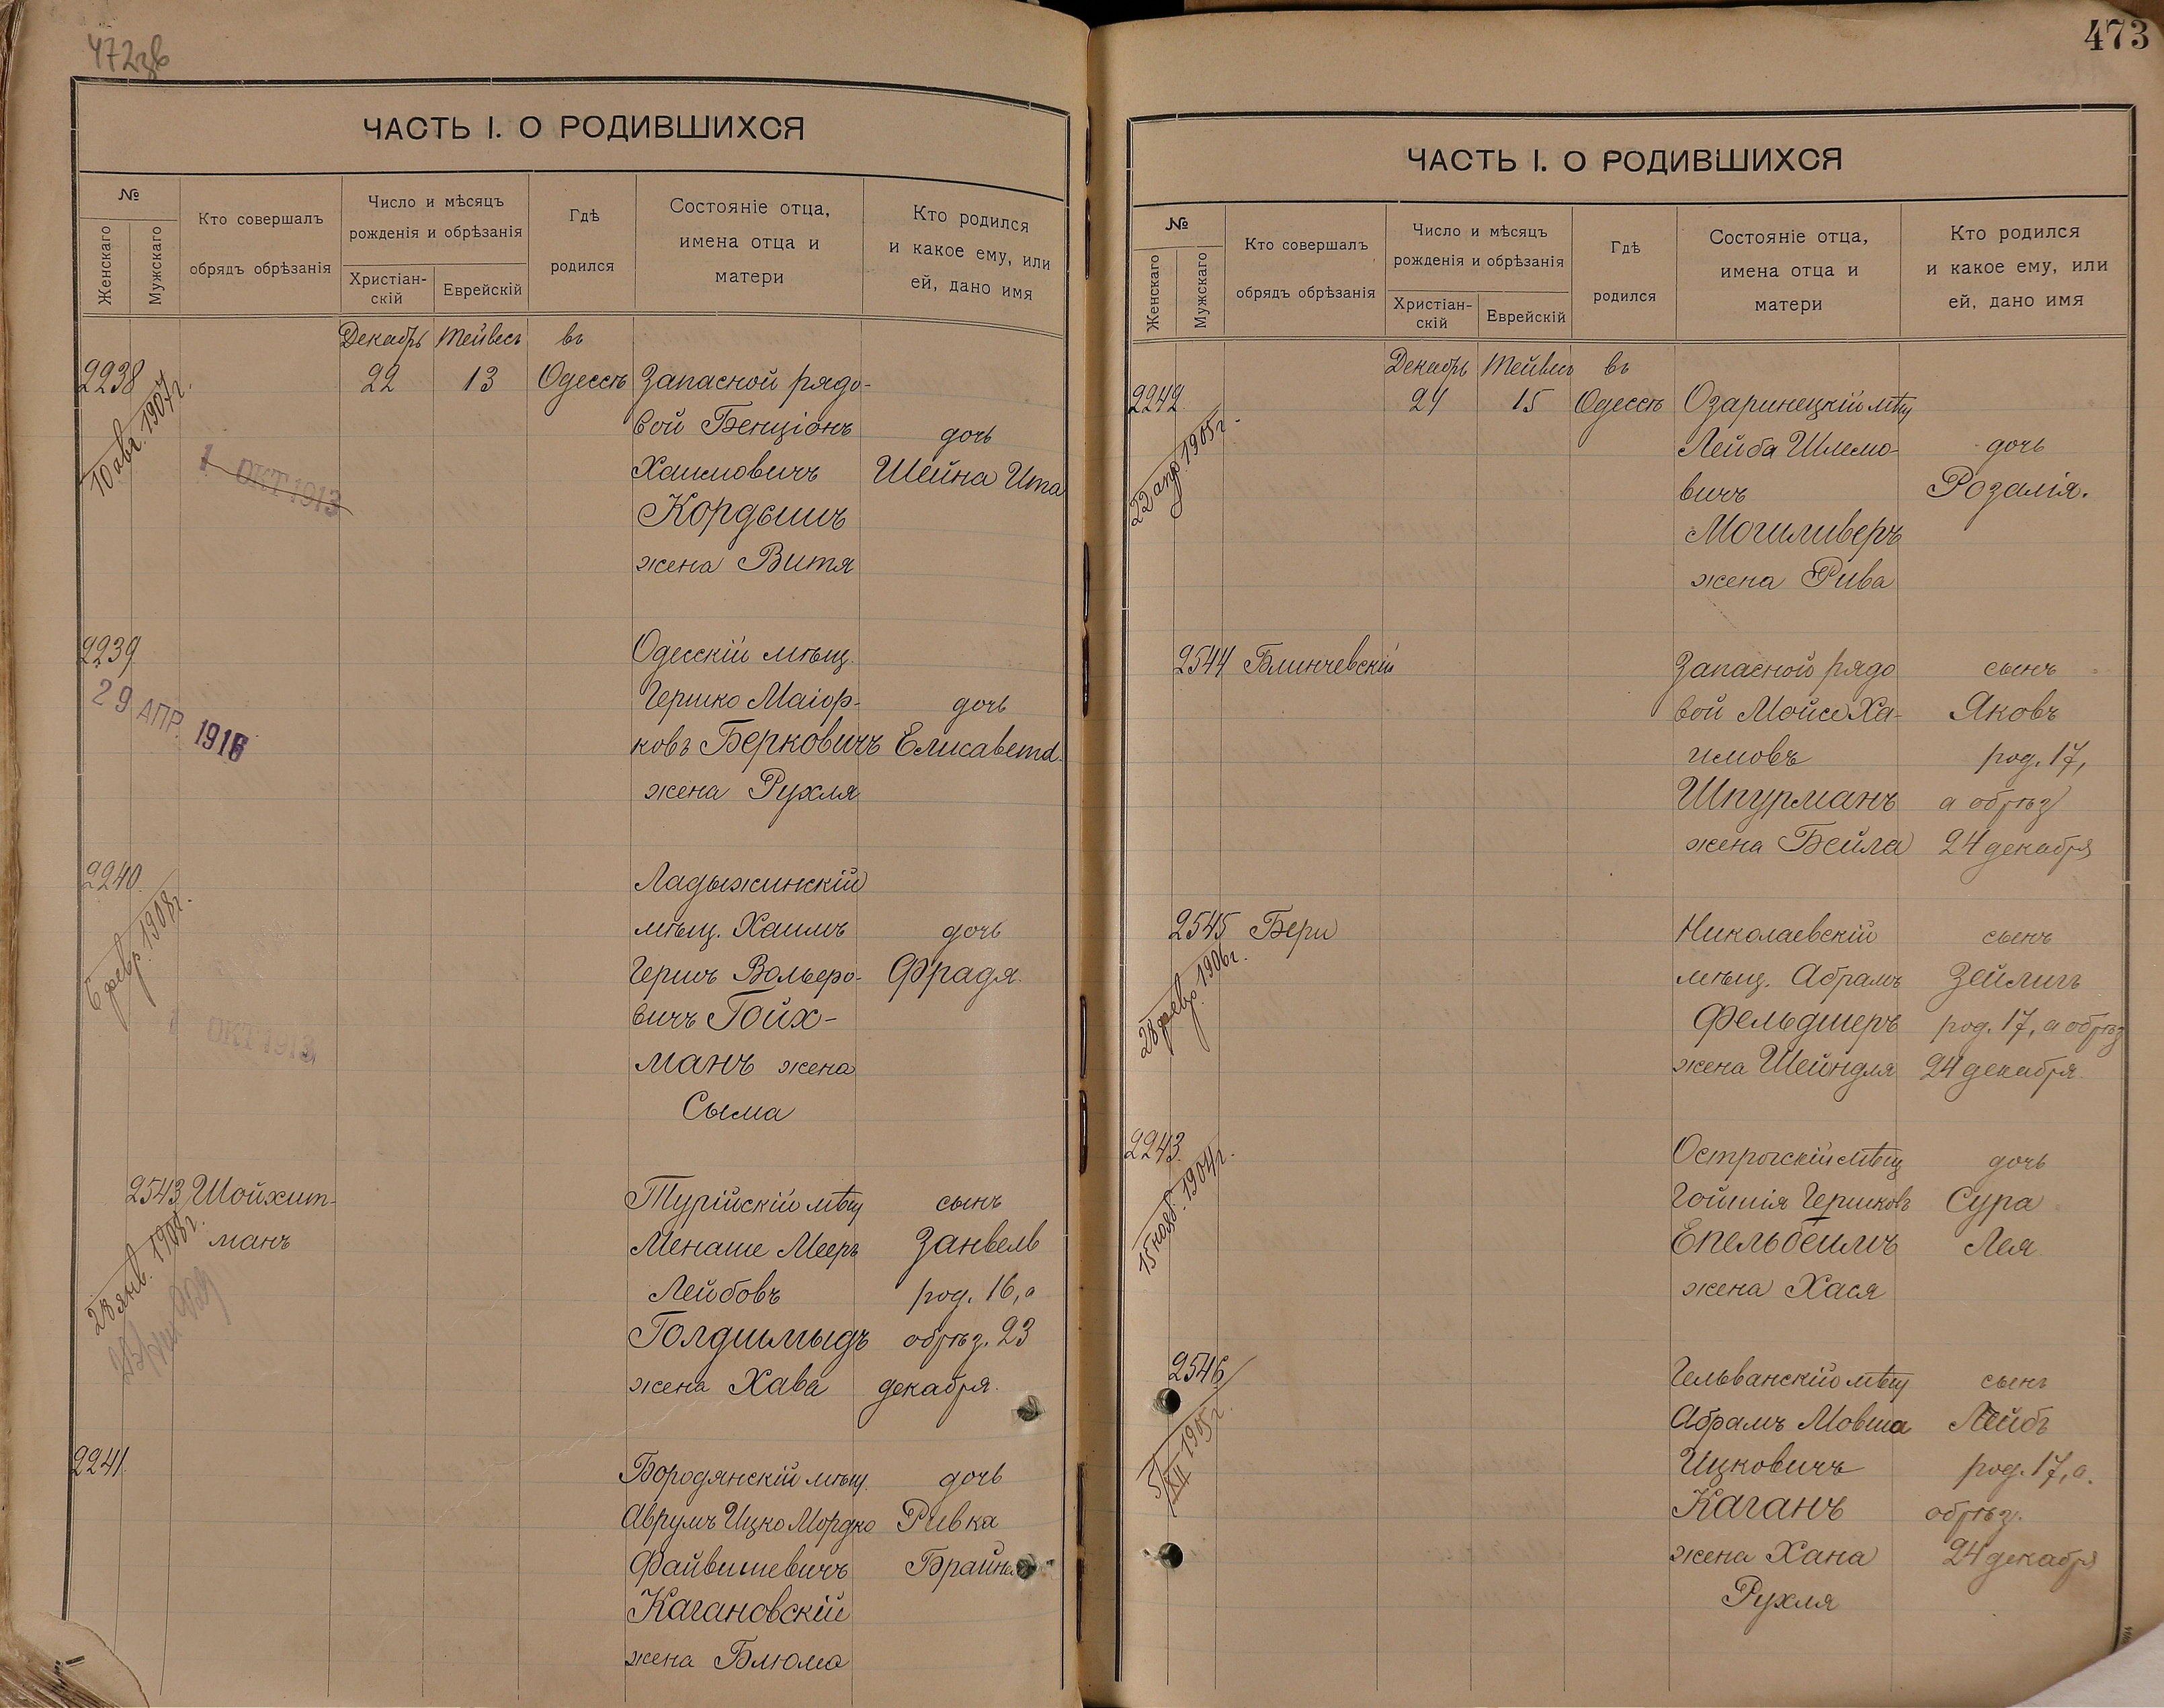 472зв
ЧАСТЬ I. О РОДИВШИХСЯ
№
Женскаго
Мужскаго
Кто совершалъ
обрядъ обрѣзанія
Число и мѣсяцъ
рожденія и обрѣзанія
Христіан-
скій
Еврейскій
Гдѣ
родился
Состояніе отца,
имена отца и
матери
Кто родился
и какое ему, или
ей, дано имя
Декабрь Тейвесъ въ
2238 22 13 Одессѣ Запасной рядо-
вой Бенціонъ дочь
Хаимовичъ Шейна Ита
Кордышъ
жена Витя
10 авг. 1907г.
1 ОКТ 1913
2239 Одесскій мѣщ.
Гершко Маіор- дочь
ковъ Берковичъ Елисавета.
жена Рухля
29 АПР. 1916
2240. Ладыжинскій
мѣщ. Хаимъ дочь
Гершъ Вольфо- Фрадя.
вичъ Гойх-
манъ жена
Сыма
6 февр. 1908г.
1 ОКТ 1913
2543 Шойхит- Турійскій мѣщ сынъ
манъ Менаше Мееръ Занвель
Лейбовъ род. 16, а
Голдшмыдъ обрѣз. 23
жена Хава декабря.
28 янв. 1908г.
2241. Бородянскій мѣщ. дочь
Аврумъ Ицко Мордко Ривка
Файвишевичъ Брайна
Кагановскій
жена Блюма
473
ЧАСТЬ I. О РОДИВШИХСЯ
№
Женскаго
Мужскаго
Кто совершалъ
обрядъ обрѣзанія
Число и мѣсяцъ
рожденія и обрѣзанія
Христіан-
скій
Еврейскій
Гдѣ
родился
Состояніе отца,
имена отца и
матери
Кто родился
и какое ему, или
ей, дано имя
Декабрь Тейвесъ въ
2242. 24 15 Одессѣ Озаринецкій мѣщ
Лейба Шлемо- дочь
вичъ Розалія.
Могиливеръ
жена Рива
22 апр. 1905г.
2544 Блинчевскій Запасной рядо сынъ
вой Мойсе Ха- Яковъ
имовъ род. 17,
Шпурманъ а обрѣз
жена Бейла 24 декабря
2545 Бери Николаевскій сынъ
мѣщ. Абрамъ Зейлигъ
Фельдшеръ род. 17, а обрѣз
жена Шейндля 24 декабря.
28 февр. 1906г.
2243. Острогскій мѣщ дочь
Гойшія Гершковъ Сура
Епельбеймъ Лея
жена Хася
15 нояб. 1904г.
2546 Гельванскій мѣщ сынъ
Абрамъ Мовша Лейбъ
Ицковичъ род. 17, а.
Каганъ обрѣз.
жена Хана 24 декабря
Рухля
5/XII 1905г.